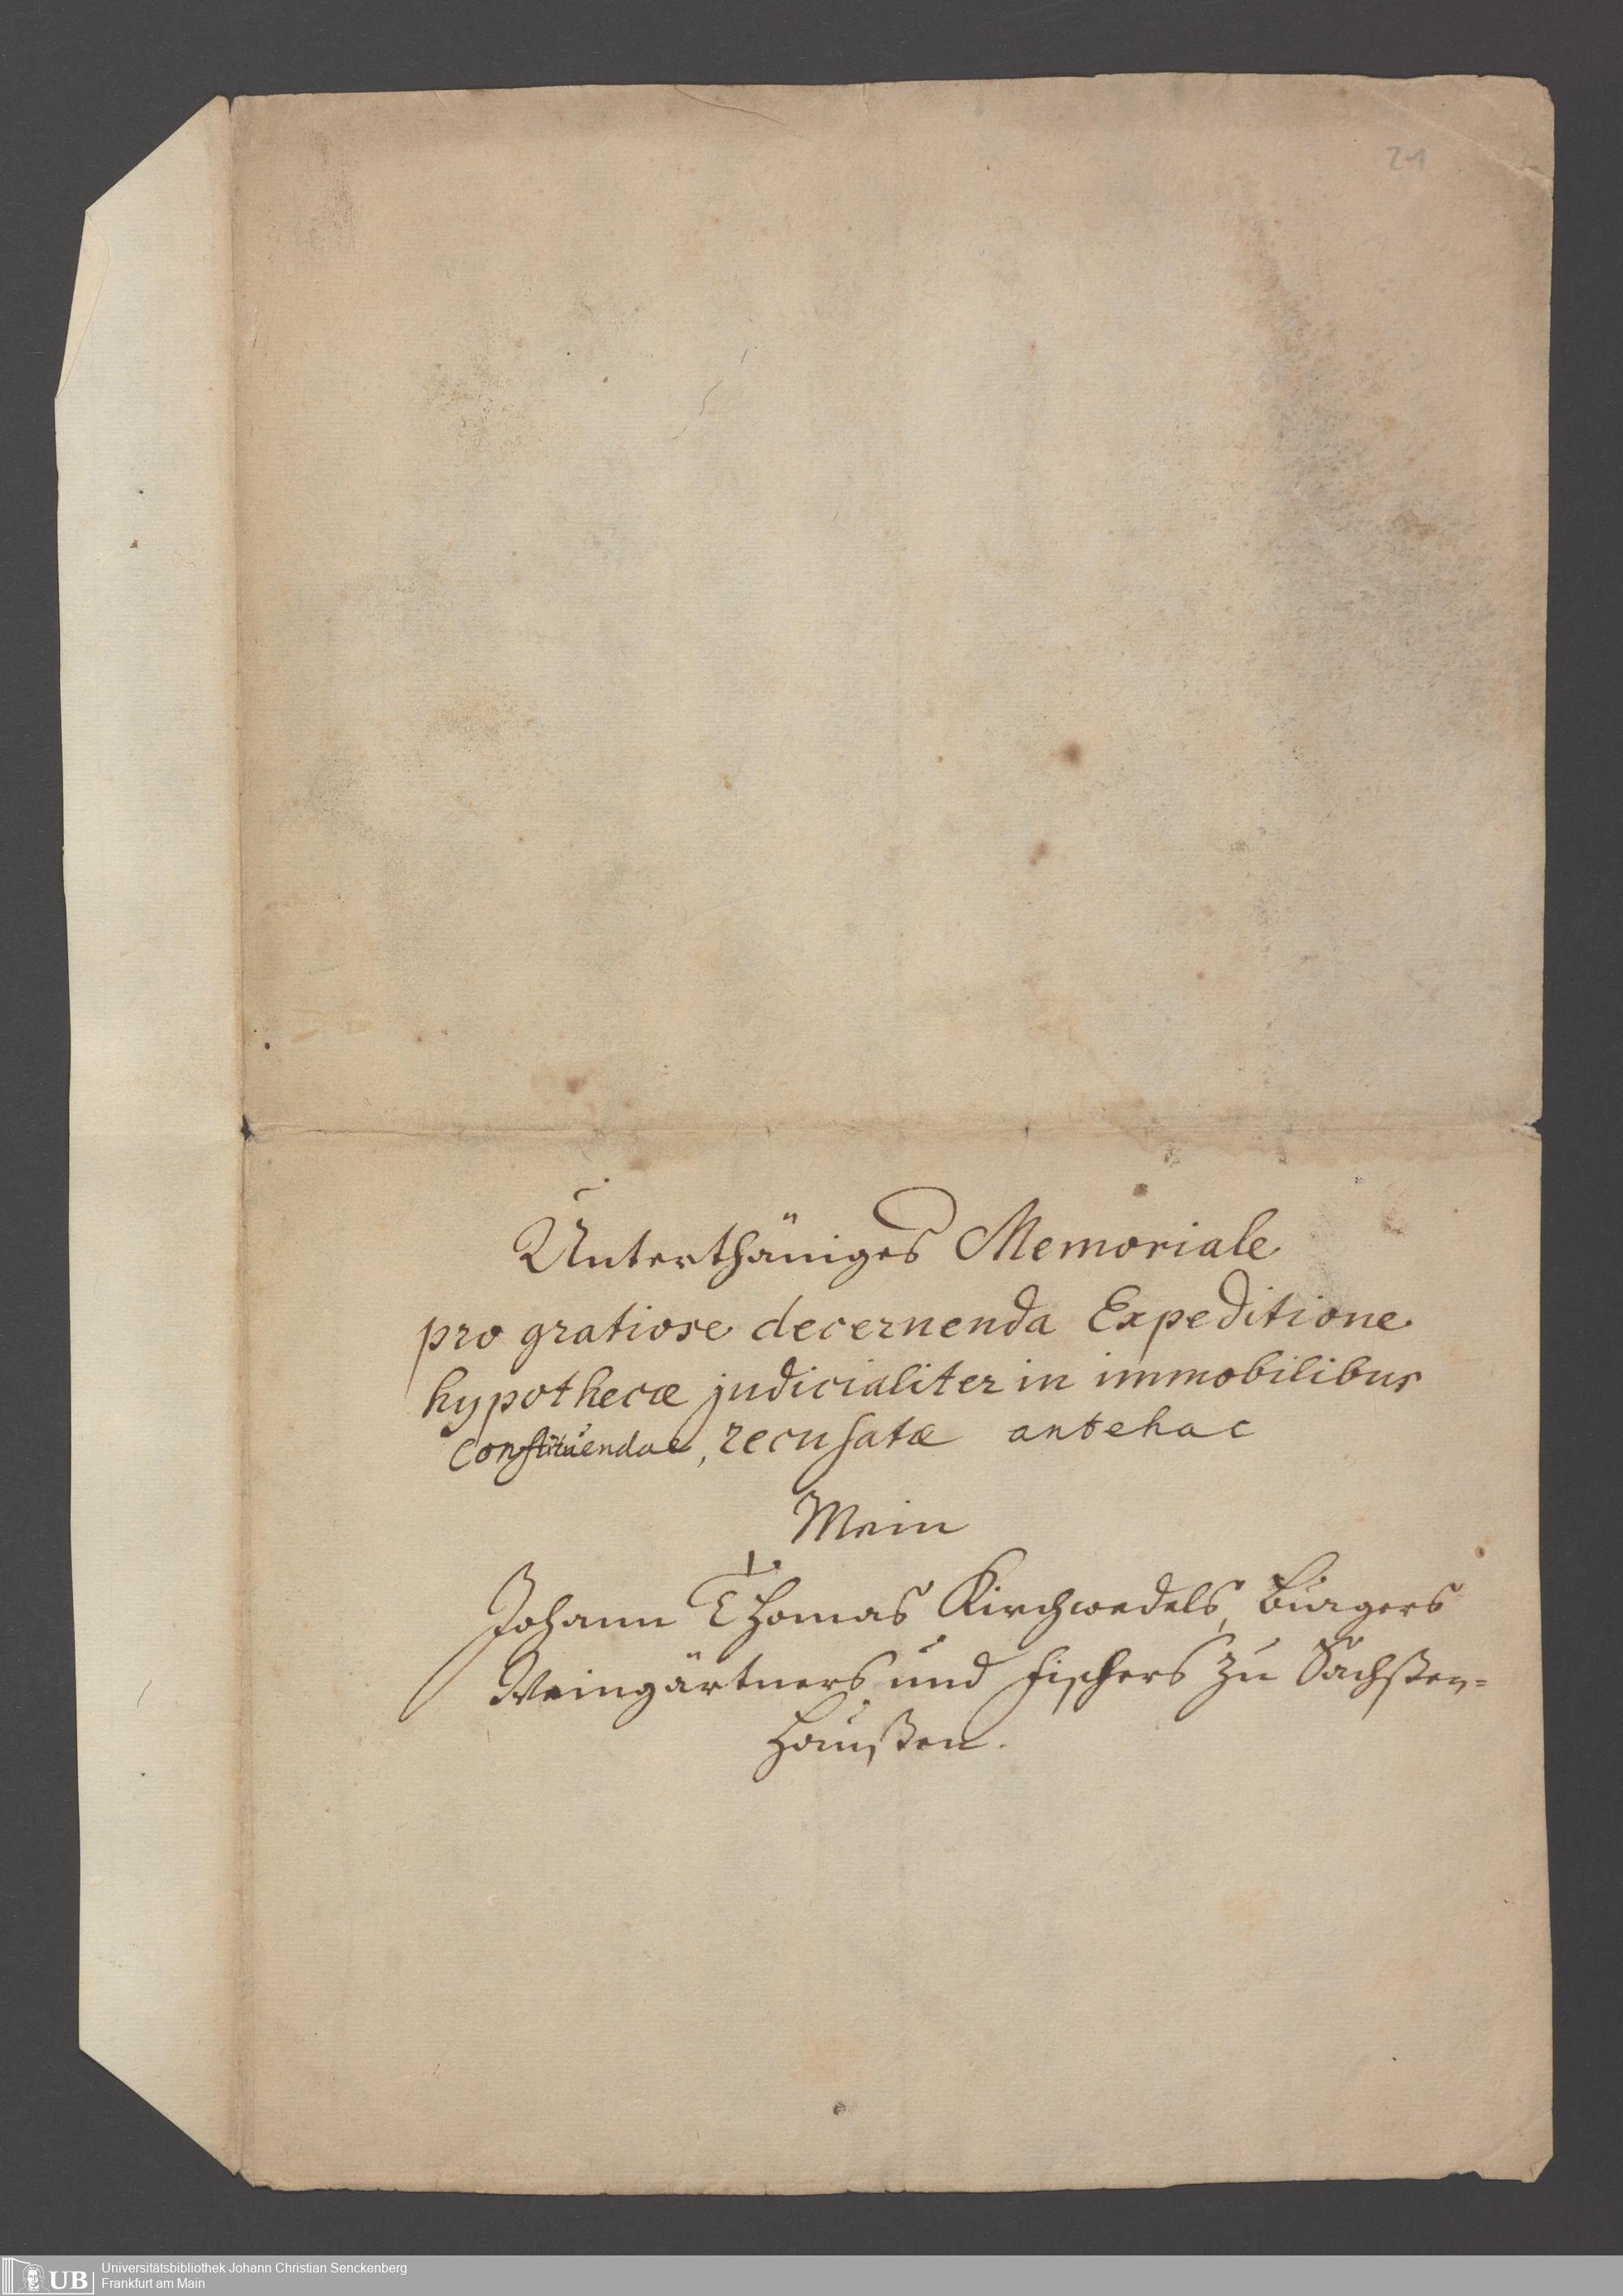 21
Unterthäniges Memoriale
pro gratiose decernenda Expeditione
hypothecæ judicialiter in immobilibus
constituendae, recusatæ antehac
Mein
Johann Thomas Kirchwedels, Burgers
Weingärtners und Fischers zu Sachßen-
haußen.
UB
Universitätsbibliothek Johann Christian Senckenberg
Frankfurt am Main